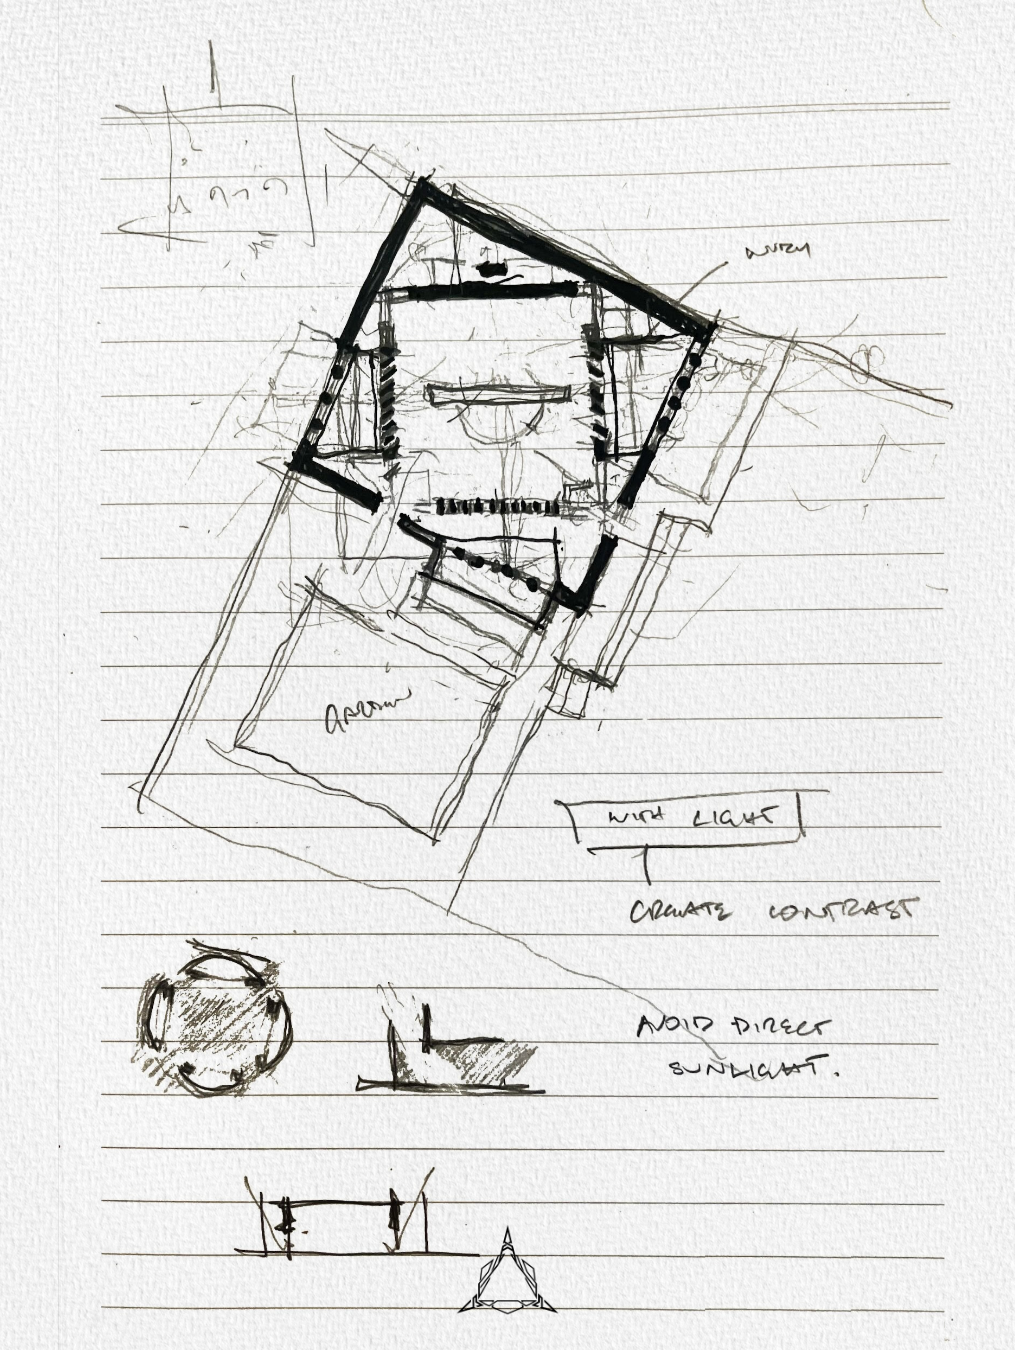 GARDEN
WITH LIGHT
CREATE CONTRAST
AVOID DIRECT
SUNLIGHT.